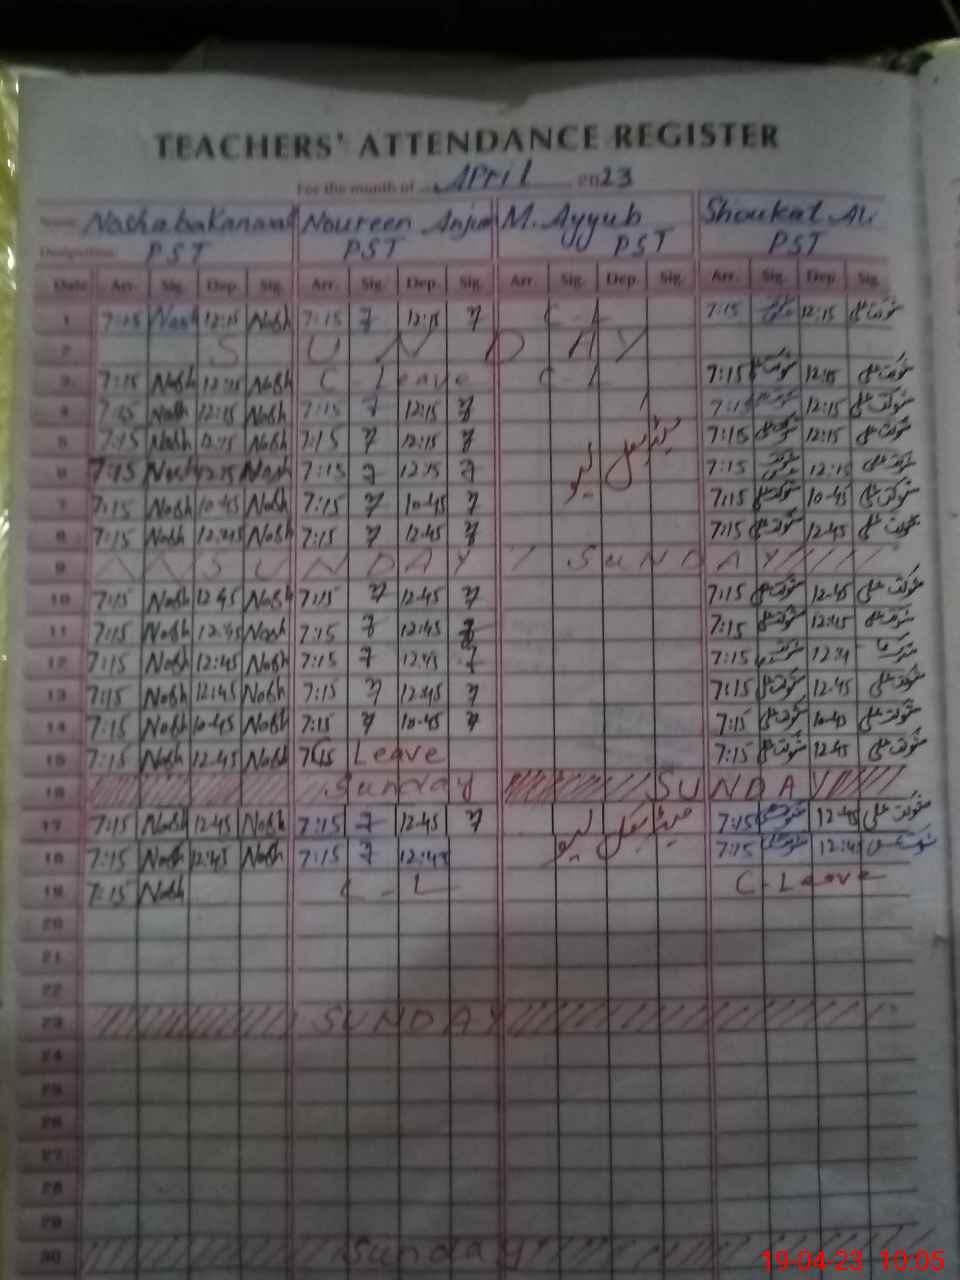 TEACHERS' ATTENDANCE REGISTER
For the month of April 2023
Name Noshaba Kanwal Noureen Anjum M. Ayyub Shoukat Ali
Designation PST PST PST PST
Date Arr. Sig. Dep. Sig. Arr. Sig. Dep. Sig. Arr. Sig. Dep. Sig. Arr. Sig. Dep. Sig.
1 7:15 Nosh 12:15 Nosh 7:15 7 12:15 7 C-L 7:15 12:15 شوکت علی
2 SUNDAY
3 7:15 Nosh 12:15 Nosh C-Leave C-L 7:15 شوکت علی 12:15 شوکت علی
4 7:15 Nosh 12:15 Nosh 7:15 7 12:15 7 7:15 شوکت علی 12:15 شوکت علی
5 7:15 Nosh 12:15 Nosh 7:15 7 12:15 7 میڈیکل لیو 7:15 شوکت علی 12:15 شوکت علی
6 7:15 Nosh 12:15 Nosh 7:15 7 12:15 7 7:15 شوکت علی 12:15 شوکت علی
7 7:15 Nosh 10-45 Nosh 7:15 7 10-45 7 7:15 شوکت علی 10-45 شوکت علی
8 7:15 Nosh 12:45 Nosh 7:15 7 12-45 7 7:15 شوکت علی 12-45 شوکت علی
9 SUNDAY SUNDAY
10 7:15 Nosh 12-45 Nosh 7:15 7 12-45 7 7:15 شوکت علی 12-45 شوکت علی
11 7:15 Nosh 12:45 Nosh 7:15 7 12:45 7:15 شوکت علی 12:45 شوکت علی
12 7:15 Nosh 12:45 Nosh 7:15 7 12:45 7 7:15 شوکت علی
13 7:15 Nosh 12:45 Nosh 7:15 7 12:45 7 7:15 شوکت علی 12-45 شوکت علی
14 7:15 Nosh 10-45 Nosh 7:15 7 10-45 7 7:15 شوکت علی 10-45 شوکت علی
15 7:15 Nosh 12-45 Nosh 7:15 Leave 7:15 شوکت علی 12-45 شوکت علی
16 Sunday SUNDAY
17 7:15 Nosh 12-45 Nosh 7:15 7 12-45 7 میڈیکل لیو 7:15 شوکت علی 12-45 شوکت علی
18 7:15 Nosh 12:45 Nosh 7:15 7 12:45 7:15 شوکت علی 12:45 شوکت علی
19 7:15 Nosh C-L C-Leave
20
21
22
23 SUNDAY
24
25
26
27
28
29
30 Sunday
19-04-23 10:05